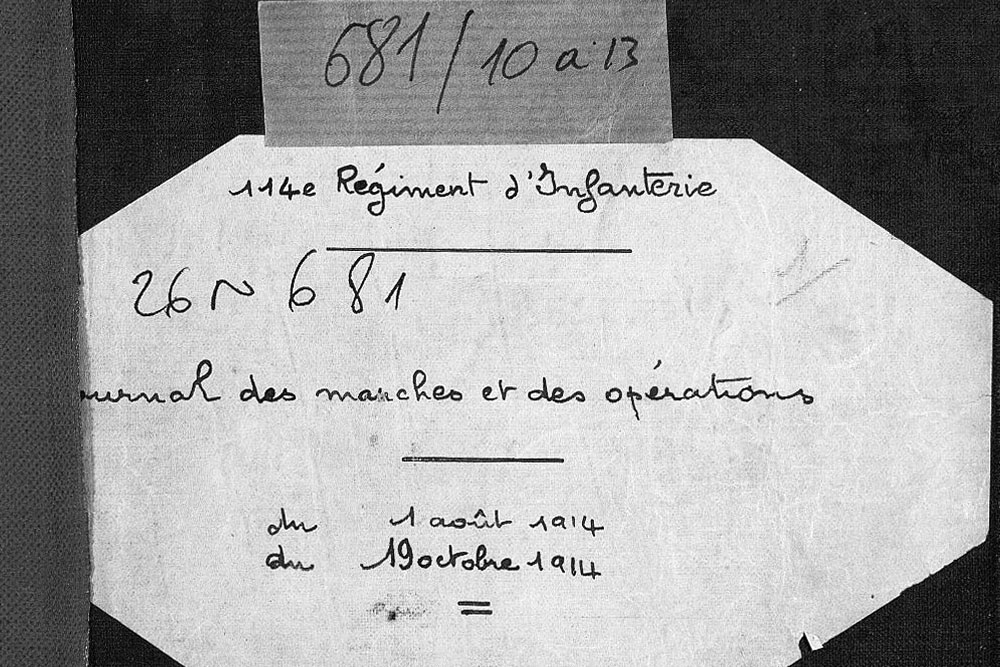 681/10 a 13
114e Régiment d'Infanterie
26 N 681
ournal des marches et des opérations
du 1 août 1914
du 19 octobre 1914